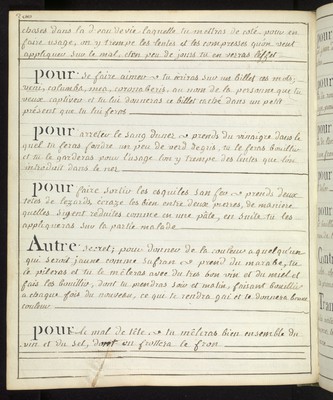 choses dans la d'eau de vie, laquelle tu mettras de coté, pour en
faire usage, on y trempe les tentes et les compresses qu'on veut
appliquer sur le mal, d'en peu de jours tu en verras l'effet
pour se faire aimer tu écriras sur un billet ces mots;
veni, columba, mea, au nom de la personne que tu
veux captiver et tu lui donneras ce billet caché dans un petit
présent que tu lui feras
pour arreter le sang du nez prends du vinaigre dans le
quel tu feras fondre un peu de verd de gris, tu le feras bouillir
et tu le garderas pour l'usage l'on y trempe des tentes que l'on
introduit dans le nez
pour faire sortir les esquiles san fer prends deux
tetes de lezards écraze les bien entre deux pierres, de maniere
quelles soyent réduites comme en une pâte, en suite tu les
appliqueras sur la partie malade
Autre secret; pour donner de la couleur a quelqu'un
qui seroit jaune comme safran prend du marube, tu
le pileras et tu le mêleras avec du tres bon vin et du miel et
fais les bouillir, dont tu prendras soir et matin, faisant bouillir
a chaque fois du nouveau, ce que te rendra gai et te donnera bonne
couleur
pour le mal de tête tu mêleras bien ensemble du
vin et du sel, dont on frottera le fron